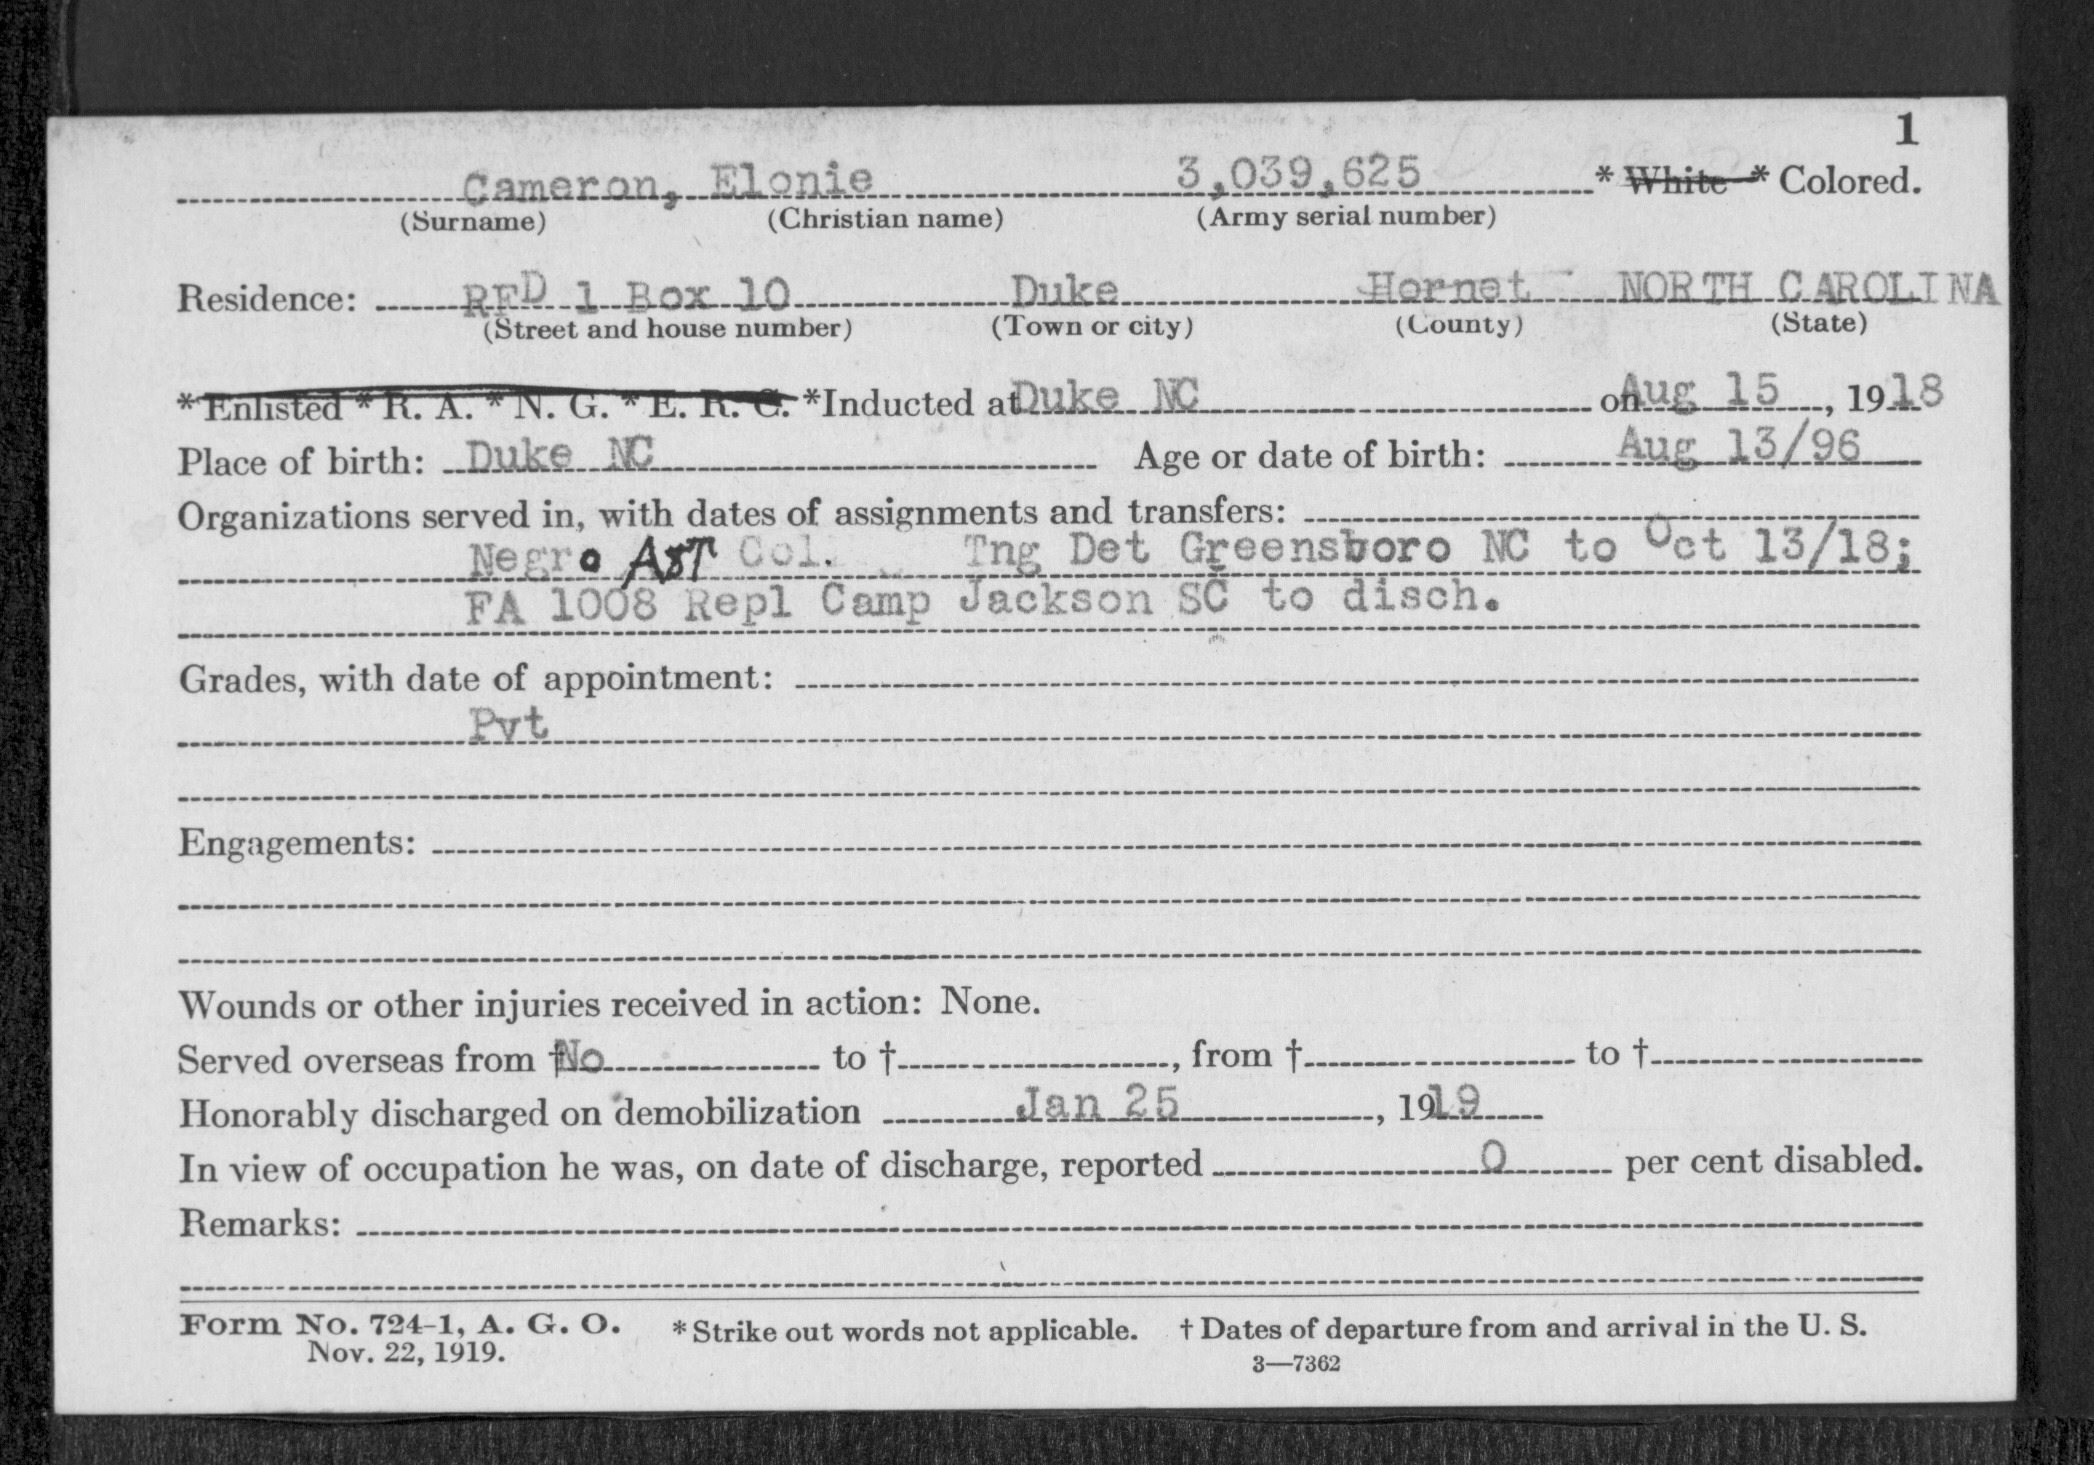 1
Cameron, Elonie 3,039,625 * White * Colored.
(Surname) (Christian name) (Army serial number)
Residence: RFD 1 Box 10 Duke Hornet NORTH CAROLINA
(Street and house number) (Town or city) (County) (State)
* Enlisted * R. A. * N. G. * E. R. C. *Inducted at Duke NC on Aug 15, 1918
Place of birth: Duke NC Age or date of birth: Aug 13/96
Organizations served in, with dates of assignments and transfers:
Negro A&T Col. Tng Det Greensboro NC to Oct 13/18;
FA 1008 Repl Camp Jackson SC to disch.
Grades, with date of appointment:
Pvt
Engagements:
Wounds or other injuries received in action: None.
Served overseas from † No to †, from † to †
Honorably discharged on demobilization Jan 25, 1919
In view of occupation he was, on date of discharge, reported 0 per cent disabled.
Remarks:
Form No. 724-1, A. G. O. * Strike out words not applicable. † Dates of departure from and arrival in the U. S.
Nov. 22, 1919. 3—7362